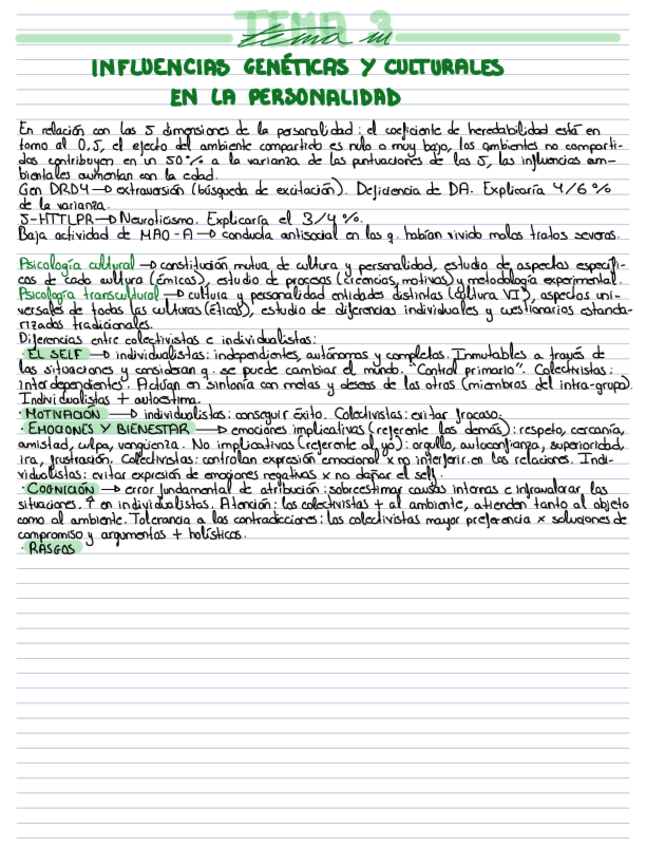 TEMA 3
tema III
INFLUENCIAS GENÉTICAS Y CULTURALES
EN LA PERSONALIDAD
En relación con las 5 dimensiones de la personalidad: el coeficiente de heredabilidad está en
torno al 0,5, el efecto del ambiente compartido es nulo o muy bajo, los ambientes no comparti-
dos contribuyen en un 50% a la varianza de las puntuaciones de las 5, las influencias am-
bientales aumentan con la edad.
Gen DRD4 → extraversión (búsqueda de excitación). Deficiencia de DA. Explicaría 4/6 %
de la varianza.
5-HTTLPR → Neuroticismo. Explicaría el 3/4 %.
Baja actividad de MAO-A → conducta antisocial en los q. habían vivido malos tratos severos.
Psicología cultural → constitución mutua de cultura y personalidad, estudio de aspectos específi-
cos de cada cultura (émicos), estudio de procesos (creencias, motivos) y metodología experimental.
Psicología transcultural → cultura y personalidad entidades distintas (cultura VI), aspectos uni-
versales de todas las culturas (éticos), estudio de diferencias individuales y cuestionarios estanda-
rizados tradicionales.
Diferencias entre colectivistas e individualistas:
· EL SELF → individualistas: independientes, autónomos y completos. Inmutables a través de
las situaciones y consideran q. se puede cambiar el mundo. "Control primario". Colectivistas:
interdependientes. Actúan en sintonía con metas y deseos de los otros (miembros del intra-grupo).
Individualistas + autoestima.
· MOTIVACIÓN → individualistas: conseguir éxito. Colectivistas: evitar fracaso.
· EMOCIONES Y BIENESTAR → emociones implicativas (referente los demás): respeto, cercanía,
amistad, culpa, vergüenza. No implicativas (referente al yo): orgullo, autoconfianza, superioridad,
ira, frustración. Colectivistas: controlan expresión emocional x no interferir en las relaciones. Indi-
vidualistas: evitar expresión de emociones negativas x no dañar el self.
· COGNICIÓN → error fundamental de atribución: sobreestimar causas internas e infravalorar las
situaciones. ↑ en individualistas. Atención: los colectivistas + al ambiente, atienden tanto al objeto
como al ambiente. Tolerancia a las contradicciones: los colectivistas mayor preferencia x soluciones de
compromiso y argumentos + holísticos.
· RASGOS